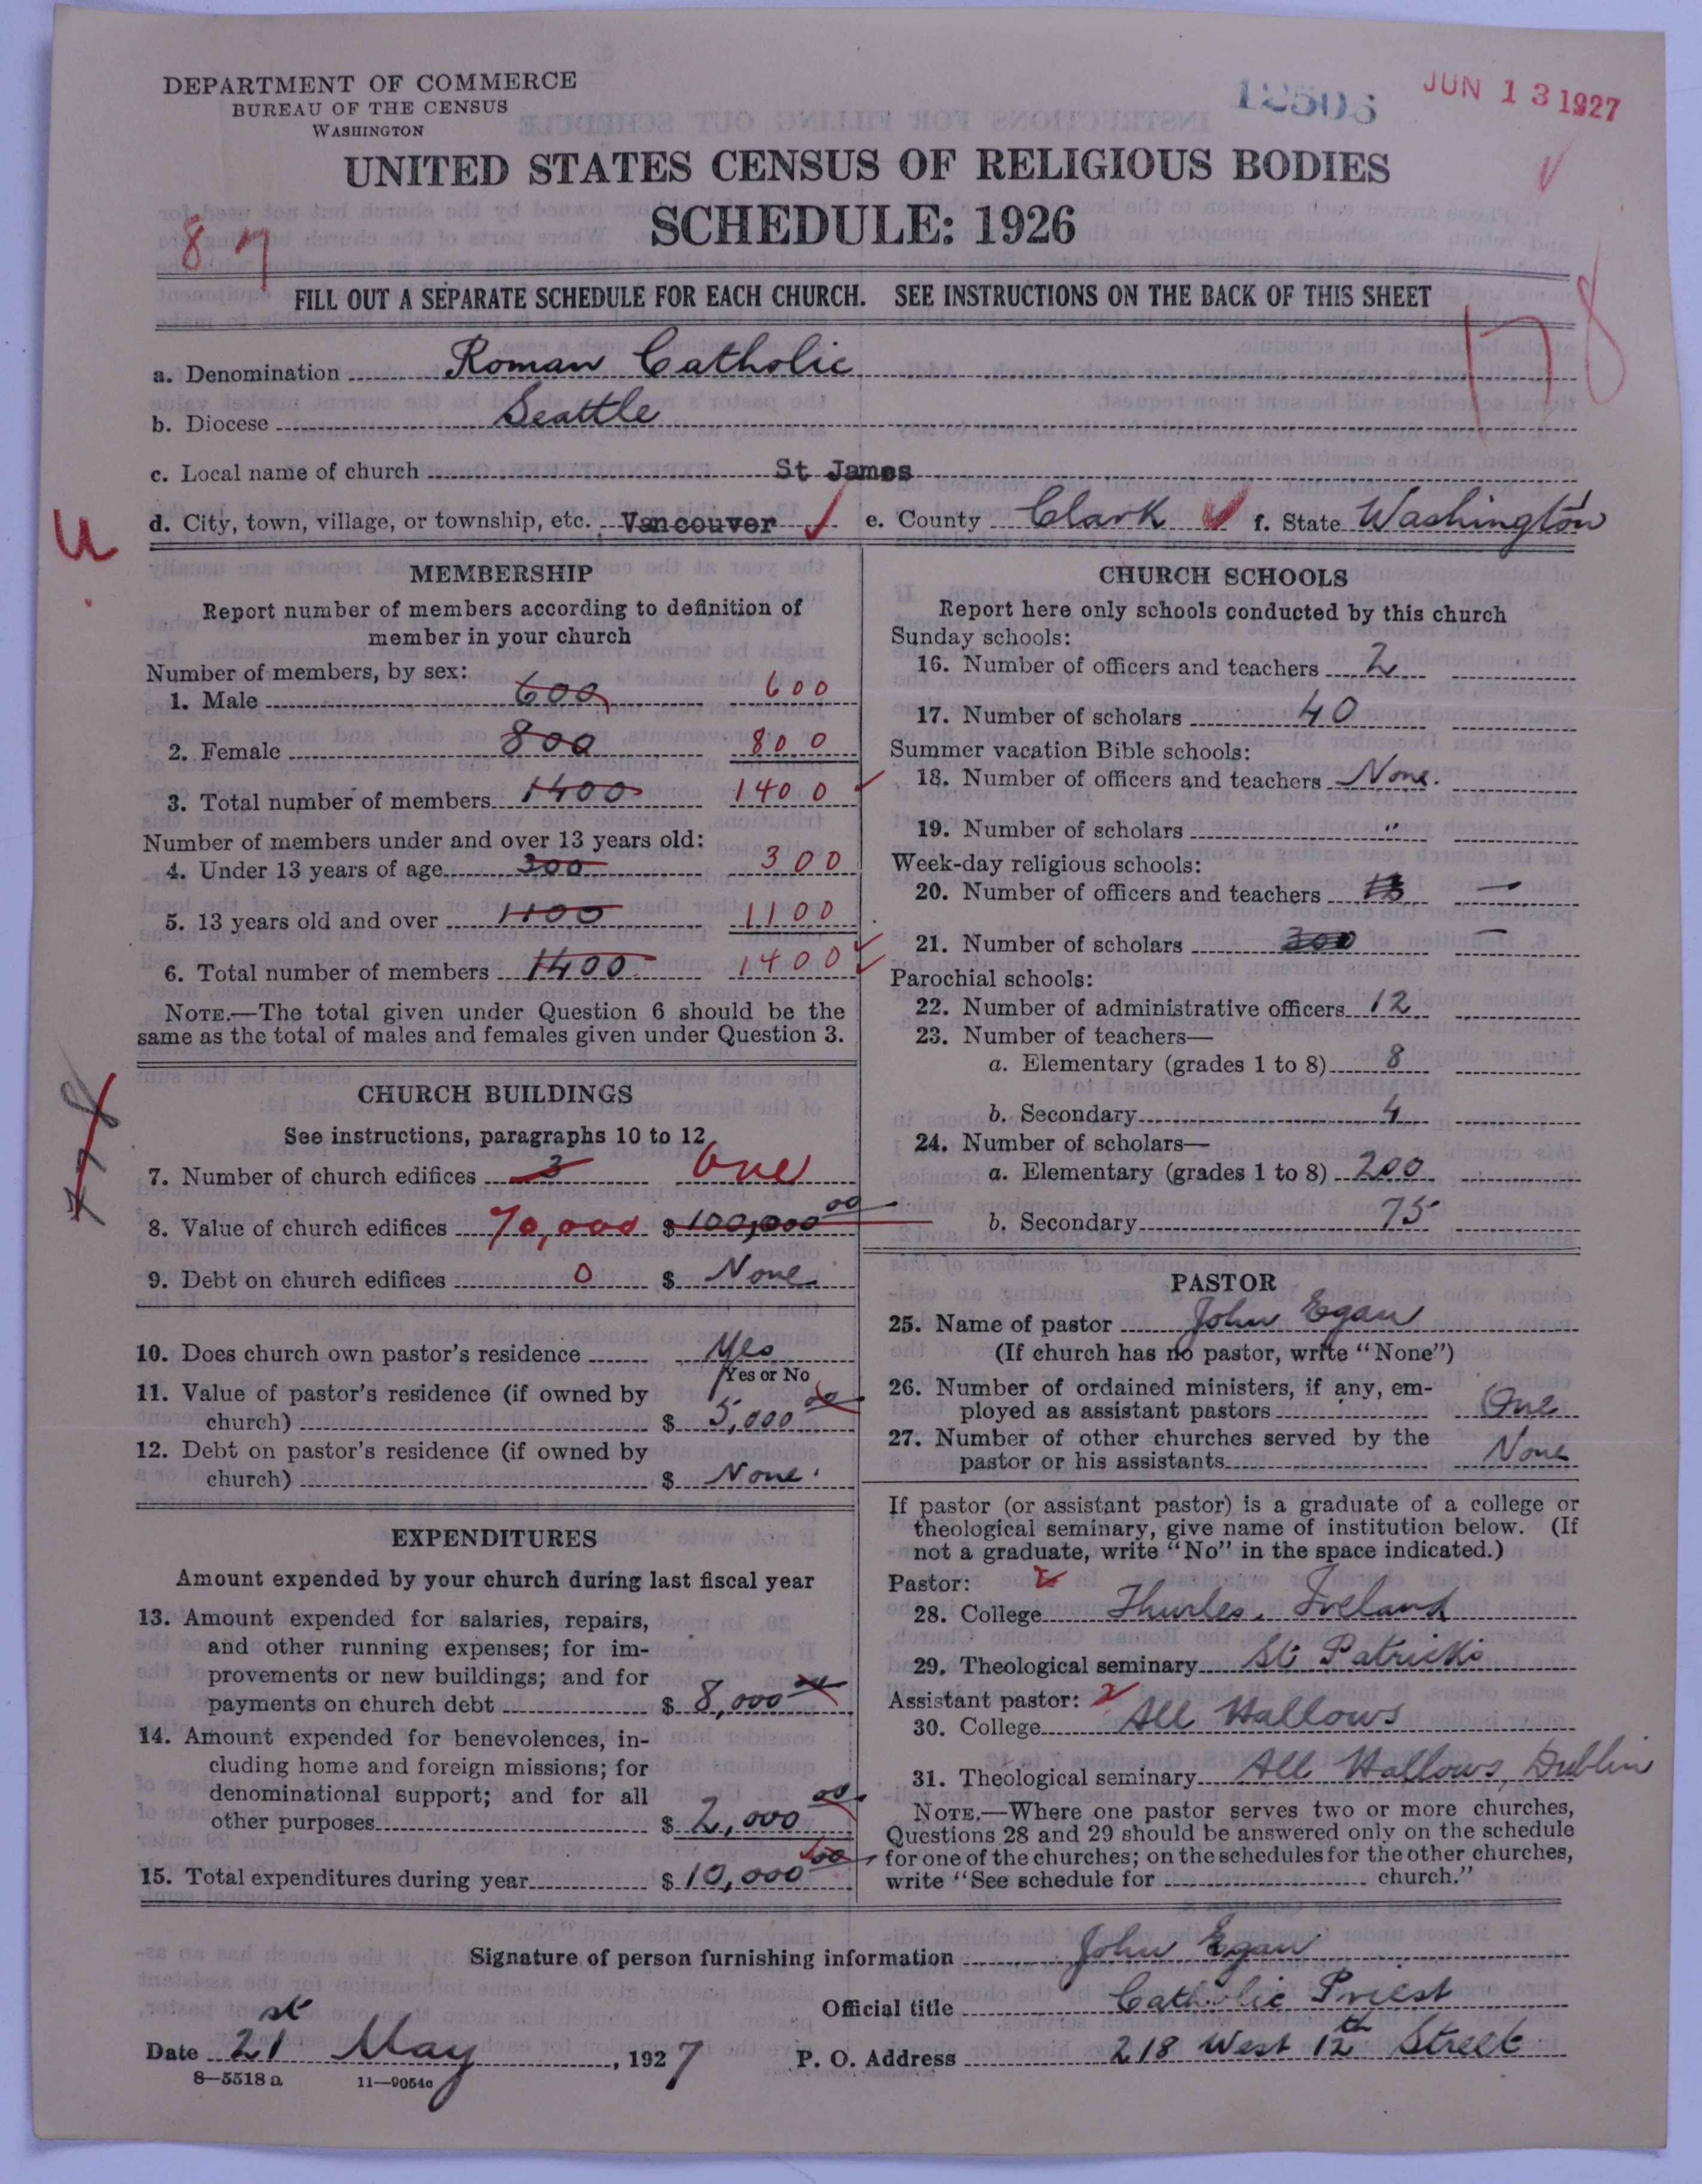 DEPARTMENT OF COMMERCE
BUREAU OF THE CENSUS
WASHINGTON
12505
JUN 13 1927
UNITED STATES CENSUS OF RELIGIOUS BODIES
SCHEDULE: 1926
87
FILL OUT A SEPARATE SCHEDULE FOR EACH CHURCH. SEE INSTRUCTIONS ON THE BACK OF THIS SHEET
178
a. Denomination Roman Catholic
b. Diocese Seattle
c. Local name of church St James
d. City, town, village, or township, etc. Vancouver e. County Clark f. State Washington
u
MEMBERSHIP
Report number of members according to definition of
member in your church
Number of members, by sex:
1. Male 600 600
2. Female 800 800
3. Total number of members 1400 1400
Number of members under and over 13 years old:
4. Under 13 years of age 300 300
5. 13 years old and over 1100 1100
6. Total number of members 1400 1400
NOTE.—The total given under Question 6 should be the
same as the total of males and females given under Question 3.
778
CHURCH BUILDINGS
See instructions, paragraphs 10 to 12
7. Number of church edifices 3 One
8. Value of church edifices 70,000 $100,000 00
9. Debt on church edifices 0 $ None
10. Does church own pastor's residence Yes
Yes or No
11. Value of pastor's residence (if owned by
church) $ 5,000 00
12. Debt on pastor's residence (if owned by
church) $ None.
EXPENDITURES
Amount expended by your church during last fiscal year
13. Amount expended for salaries, repairs,
and other running expenses; for im-
provements or new buildings; and for
payments on church debt $ 8,000 00
14. Amount expended for benevolences, in-
cluding home and foreign missions; for
denominational support; and for all
other purposes $ 2,000 00
15. Total expenditures during year $ 10,000 00
CHURCH SCHOOLS
Report here only schools conducted by this church
Sunday schools:
16. Number of officers and teachers 2
17. Number of scholars 40
Summer vacation Bible schools:
18. Number of officers and teachers None.
19. Number of scholars "
Week-day religious schools:
20. Number of officers and teachers —
21. Number of scholars 300 —
Parochial schools:
22. Number of administrative officers 12
23. Number of teachers—
a. Elementary (grades 1 to 8) 8
b. Secondary 4
24. Number of scholars—
a. Elementary (grades 1 to 8) 200
b. Secondary 75
PASTOR
25. Name of pastor John Egan
(If church has no pastor, write "None")
26. Number of ordained ministers, if any, em-
ployed as assistant pastors One
27. Number of other churches served by the
pastor or his assistants None
If pastor (or assistant pastor) is a graduate of a college or
theological seminary, give name of institution below. (If
not a graduate, write "No" in the space indicated.)
Pastor:
28. College Thurles, Ireland
29. Theological seminary St Patricks
Assistant pastor:
30. College All Hallows
31. Theological seminary All Hallows, Dublin
NOTE.—Where one pastor serves two or more churches,
Questions 28 and 29 should be answered only on the schedule
for one of the churches; on the schedules for the other churches,
write "See schedule for church."
Signature of person furnishing information John Egan
Official title Catholic Priest
Date 21st May, 1927 P. O. Address 218 West 12th Street
8—5518a 11—9054a